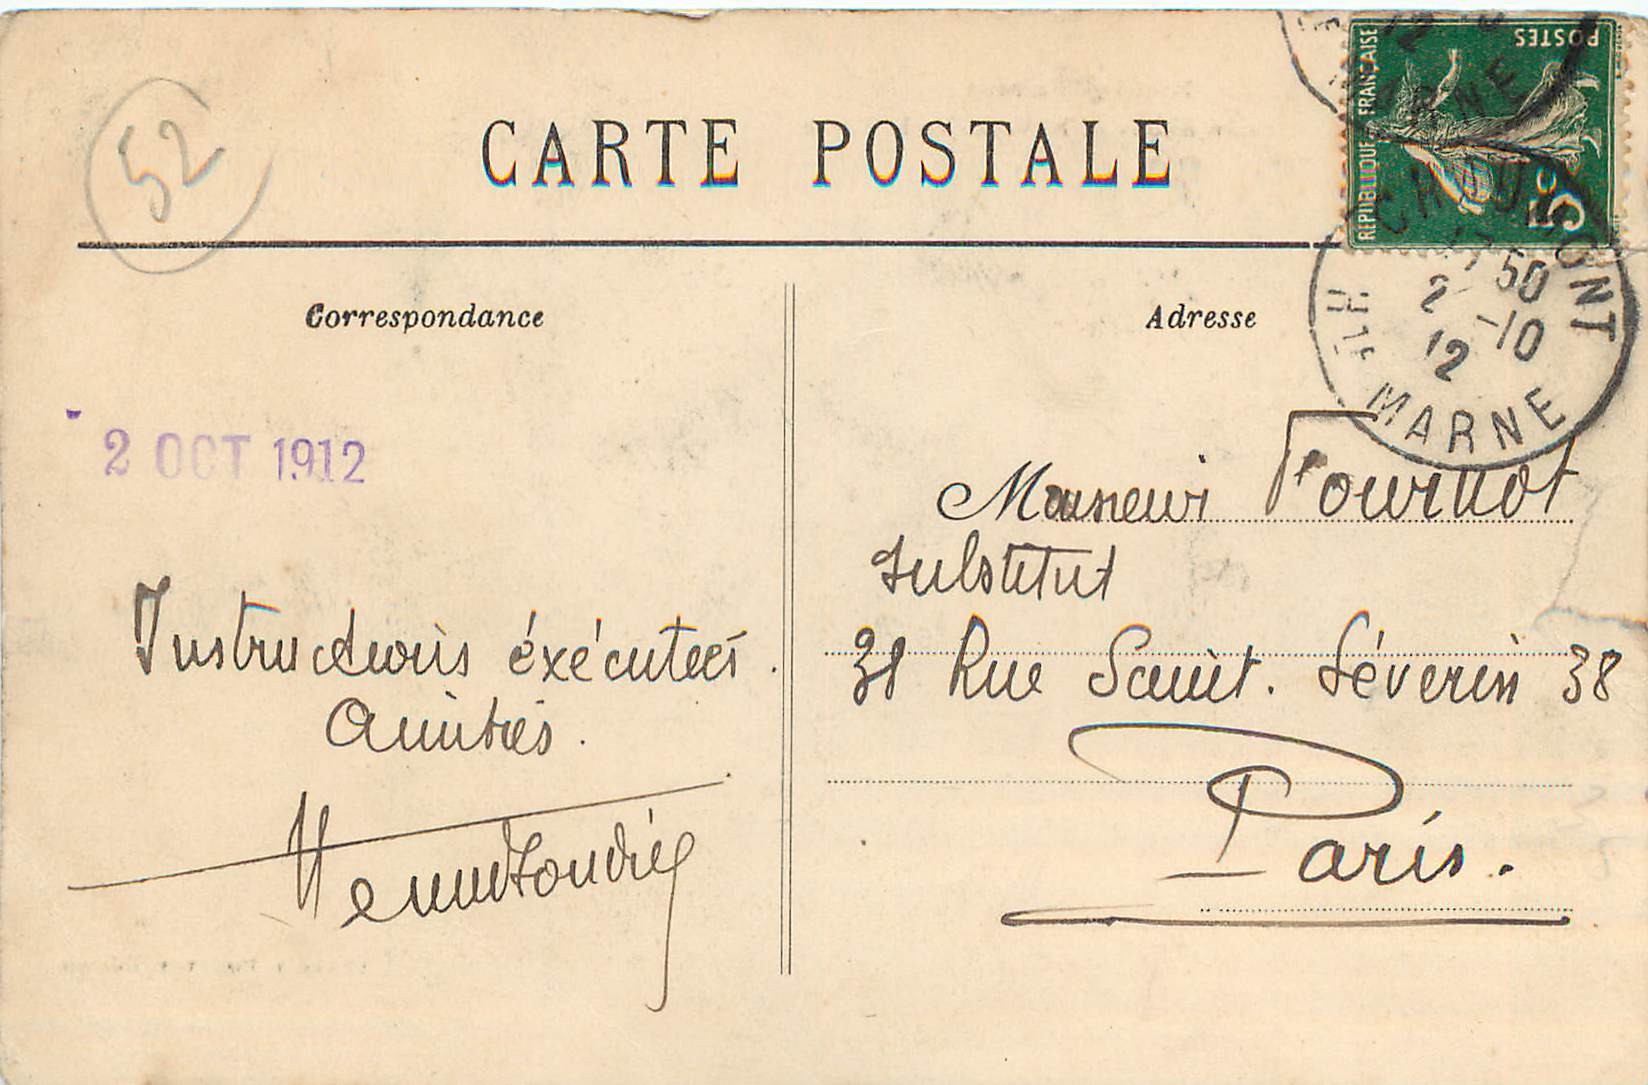 52
CARTE POSTALE
RÉPUBLIQUE FRANÇAISE
POSTES
5c
MARNE
CHAUMONT
17 50
2 -10
12
Hte MARNE
Correspondance
2 OCT 1912
Instructions éxécutées.
Amitiés.
Adresse
Monsieur Fournot
Substitut
38 Rue Saint. Séverin 38
Paris.